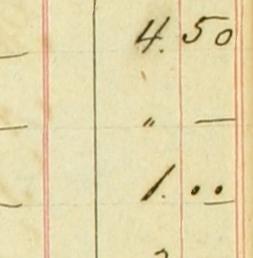 4. 50
" —
1. ..